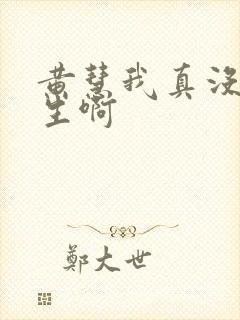 黄慧我真没
生啊
鄭大世